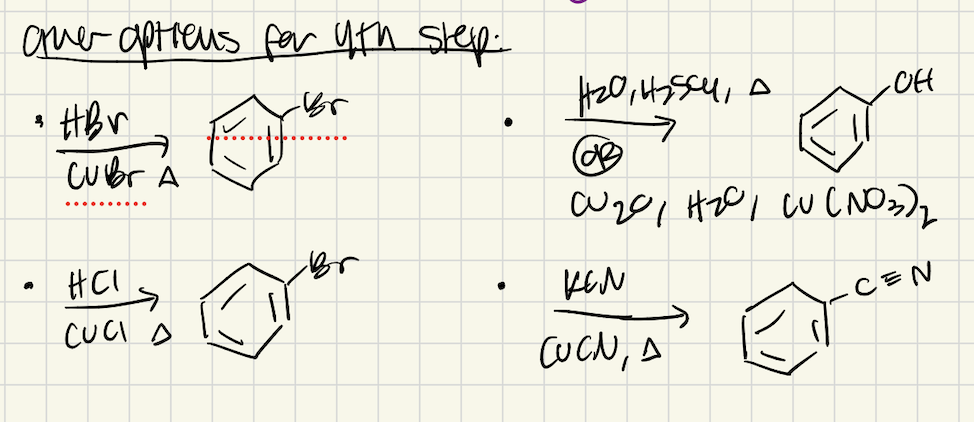 other options for 4th step:
• HBr
CuBr Δ
Br
• H2O, H2SO4, Δ
OR
Cu2O, H2O, Cu(NO3)2
OH
• HCl
CuCl Δ
Br
• KCN
CuCN, Δ
C≡N